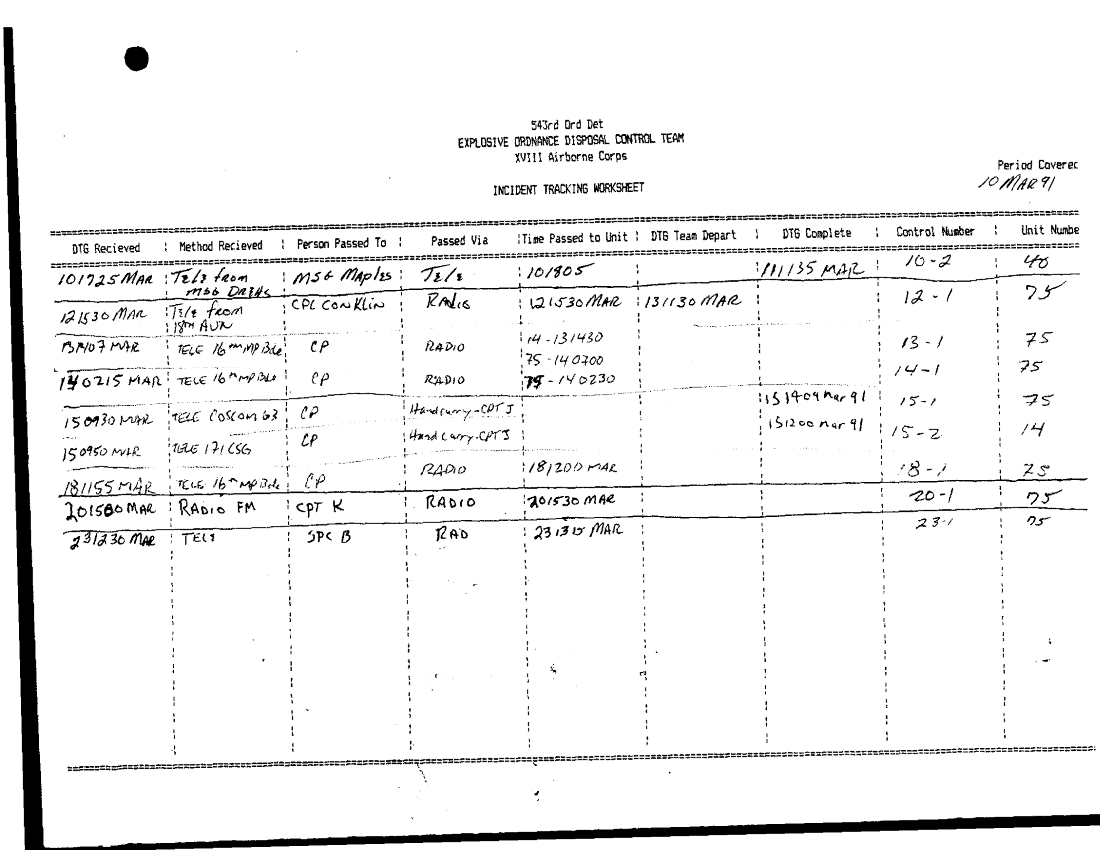 543rd Ord Det
EXPLOSIVE ORDNANCE DISPOSAL CONTROL TEAM
XVIII Airborne Corps
Period Coverec
INCIDENT TRACKING WORKSHEET
10 MAR 91
DTG Recieved Method Recieved Person Passed To Passed Via Time Passed to Unit DTG Team Depart DTG Complete Control Number Unit Numbe
101725 MAR Tele from MSG Maples Tele 101805 111135 MAR 10-2 40
MSG
121530 MAR Tele from CPL Conklin Radio 121530 MAR 131130 MAR 12-1 75
18th AVN
MAR TELE 16th MP Bde CP RADIO 14-131430 13-1 75
75-140200
140215 MAR TELE 16th MP Bde CP RADIO 75-140230 14-1 75
150930 MAR TELE COSCOM G3 CP Handcarry-CPT J 151409 Mar 91 15-1 75
150950 MAR TELE 171 CSG CP Hand Carry-CPT J 151200 Mar 91 15-2 14
181155 MAR TELE 16th MP Bde CP RADIO 181200 MAR 18-1 75
201500 MAR RADIO FM CPT K RADIO 201530 MAR 20-1 75
231230 MAR TELE SPC B RAD 231315 MAR 23-1 75